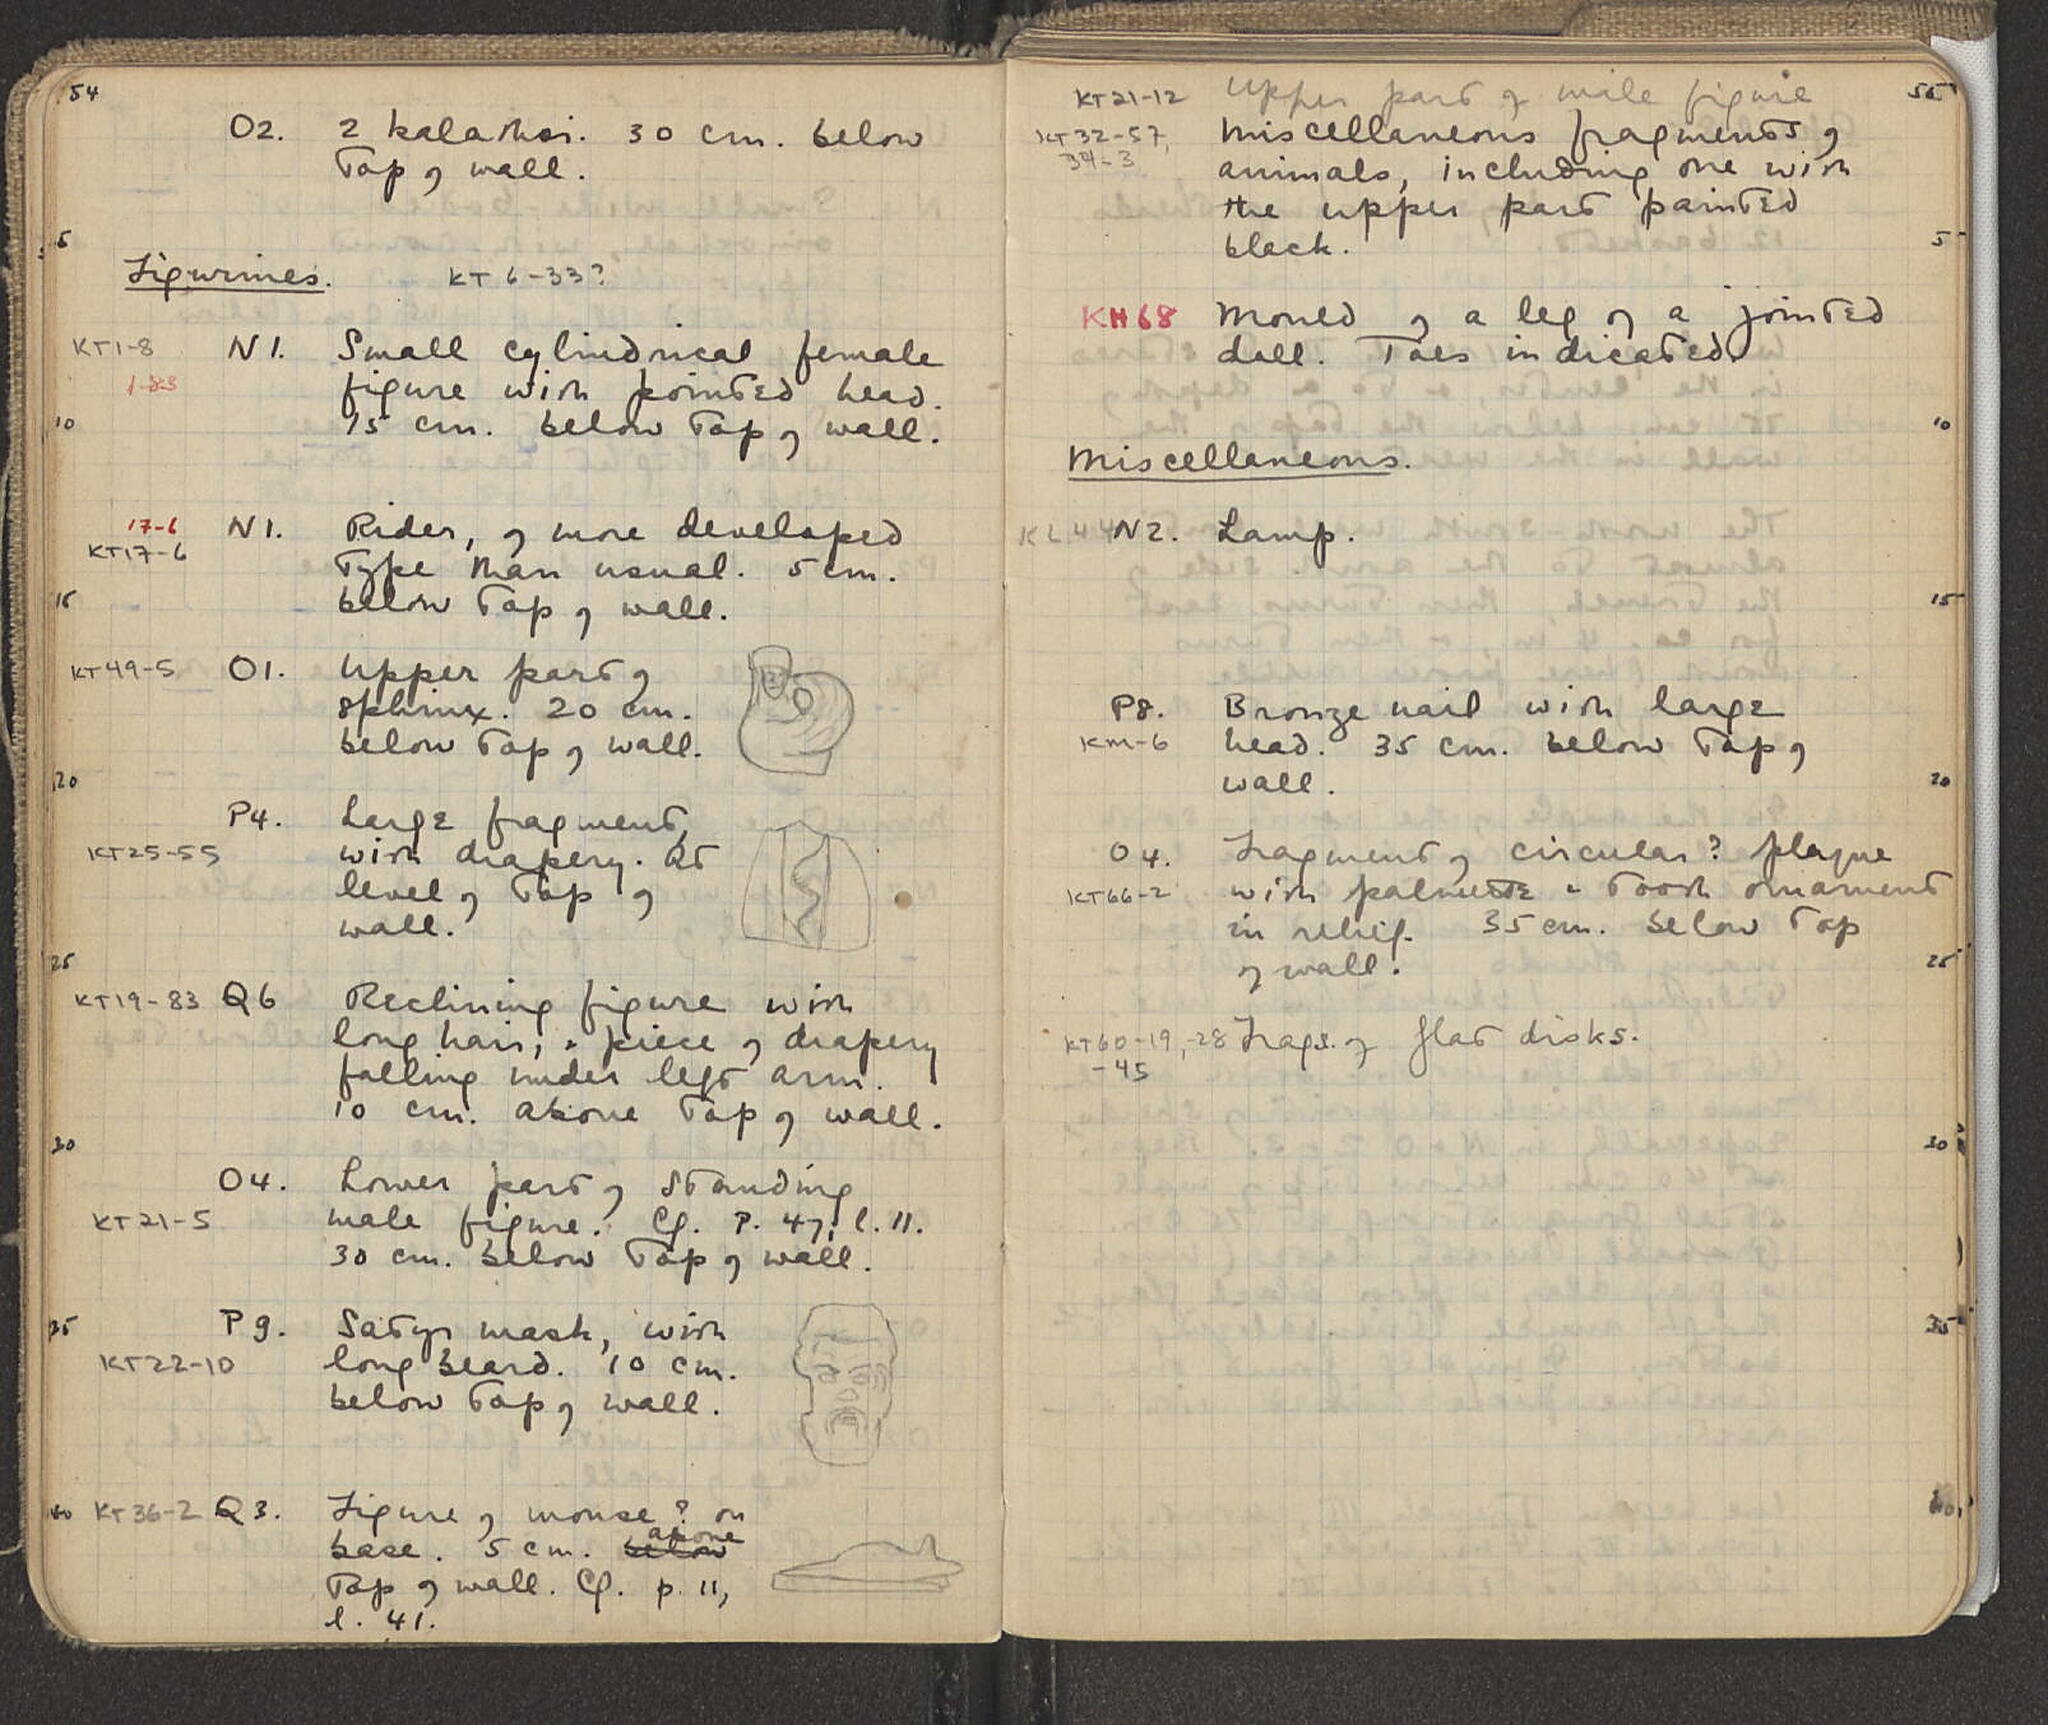 54
O2. 2 kalathoi. 30 cm. below
top of wall.
5
Figurines. KT 6-33?
KT1-8 N1. Small cylindrical female
1-83 figure with pointed head.
10 15 cm. below top of wall.
17-6 N1. Rider, of more developed
KT17-6 type than usual. 5 cm.
15 below top of wall.
KT49-5 O1. Upper part of
sphinx. 20 cm.
below top of wall.
20
P4. Large fragment,
KT25-55 with drapery. At
level of top of
wall.
25
KT19-83 Q6 Reclining figure with
long hair, & piece of drapery
falling under left arm.
10 cm. above top of wall.
30
O4. Lower part of standing
KT21-5 male figure. Cf. P. 47, l. 11.
30 cm. below top of wall.
35 P9. Satyr mask, with
KT22-10 long beard. 10 cm.
below top of wall.
40 KT36-2 Q3. Figure of mouse? on
above
base. 5 cm. below
top of wall. Cf. p. 11,
l. 41.
KT21-12 Upper part of male figure 55
KT32-57, Miscellaneous fragments of
34-3 animals, including one with
the upper part painted
black. 5
KH68 Mould of a leg of a jointed
doll. Toes indicated.
10
Miscellaneous.
KL44 N2. Lamp.
15
P8. Bronze nail with large
KM-6 head. 35 cm. below top of
wall. 20
O4. Fragment of circular? plaque
KT66-2 with palmette & tooth ornament
in relief. 35 cm. below top
of wall. 25
KT60-19, -28 Frags. of flat disks.
-45
30
35
40